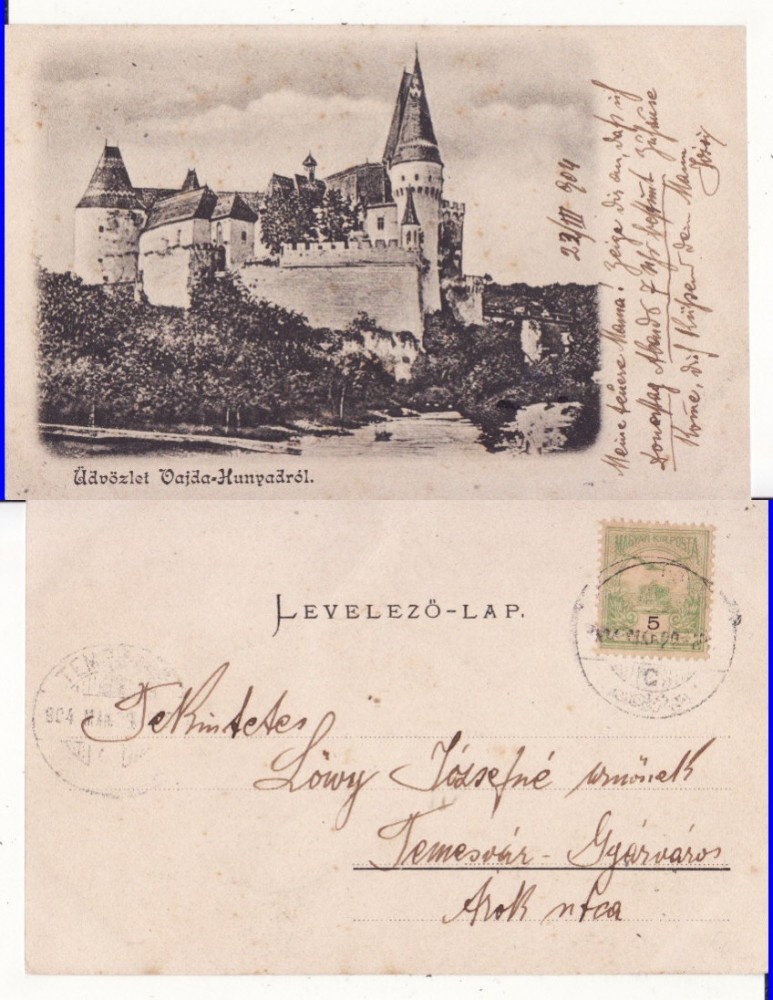 23/III 904
Meine teuere Mama! Zeige dir an, daß ich
Donerstag Abends 7 Uhr bestimt zuhause
kome, dich küßend dein Mann
Üdvözlet Vajda-Hunyadról.
MAGYAR KIR. POSTA
5
LEVELEZŐ-LAP.
904
C
Tekintetes
Löwy Józsefné urnőnek
Temesvár - Gyárváros
Arok utca